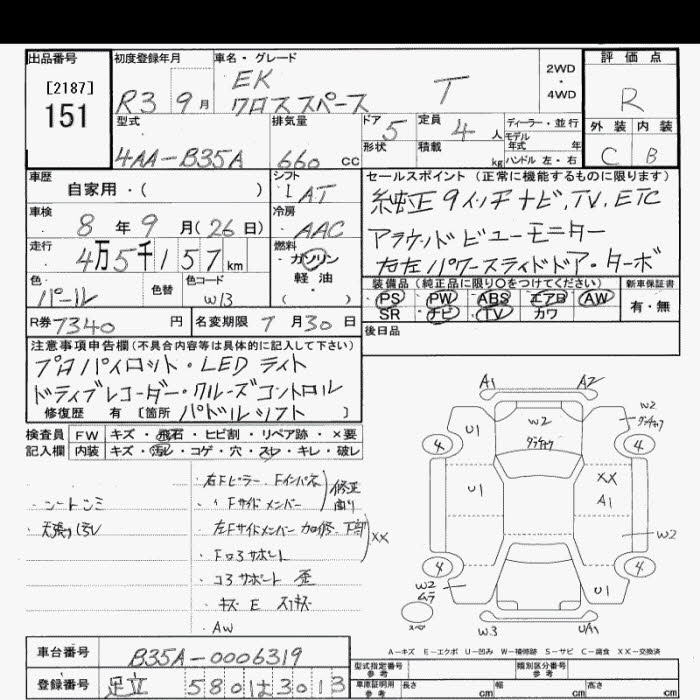 出品番号
[2187]
151
初度登録年月
R3 9月
車名・グレード
EK
クロススペース T
2WD
・
4WD
評価点
R
外装 内装
C B
型式
4AA-B35A
排気量
660 cc
ドア 5
形状
定員 4 人
積載 kg
ディーラー・並行
モデル
年式 年
ハンドル 左・右
車歴
自家用・( )
シフト
LAT
車検
8年9月(26日)
冷房
AAC
走行
4万5千157km
燃料
ガソリン
軽油
( )
色
パール
色替
色コード
W13
R券 7340 円
名変期限 7月30日
セールスポイント (正常に機能するものに限ります)
純正9インチナビ、TV、ETC
アラウンドビューモニター
右左パワースライドドア・ターボ
装備品 (純正品に限り○をつけてください)
PS PW ABS エアB AW
SR ナビ TV カワ
新車保証書
有・無
後日品
注意事項申告欄(不具合内容等は具体的に記入して下さい)
プロパイロット・LEDライト
ドライブレコーダー・クルーズコントロル
修復歴 有 [箇所 パドルシフト ]
検査員 FW キズ・飛石・ヒビ割・リペア跡・×要
記入欄 内装 キズ・汚レ・コゲ・穴・スレ・キレ・破レ
・シートシミ
・天張り汚レ
・右Fピラー Fインパネ
・〃Fサイドメンバー
修正
有り
・左Fサイドメンバー 加修 下部
・Fロアサポート
XX
・コアサポート 歪
・キズ E スリキズ
・AW
A1 A2
U1 W2 W2
4 4
U1 XX
A1
W2
4 4
W2
ムラ
U1
W3 U/A1
A-キズ E-エクボ U-凹み W-補修跡 S-サビ C-腐食 XX-交換済
車台番号 B35A-0006319
登録番号 足立 580 は3013
型式指定番号
参考
類別区分番号
参考
車庫証明用
参考
長さ cm 幅 cm 高さ cm